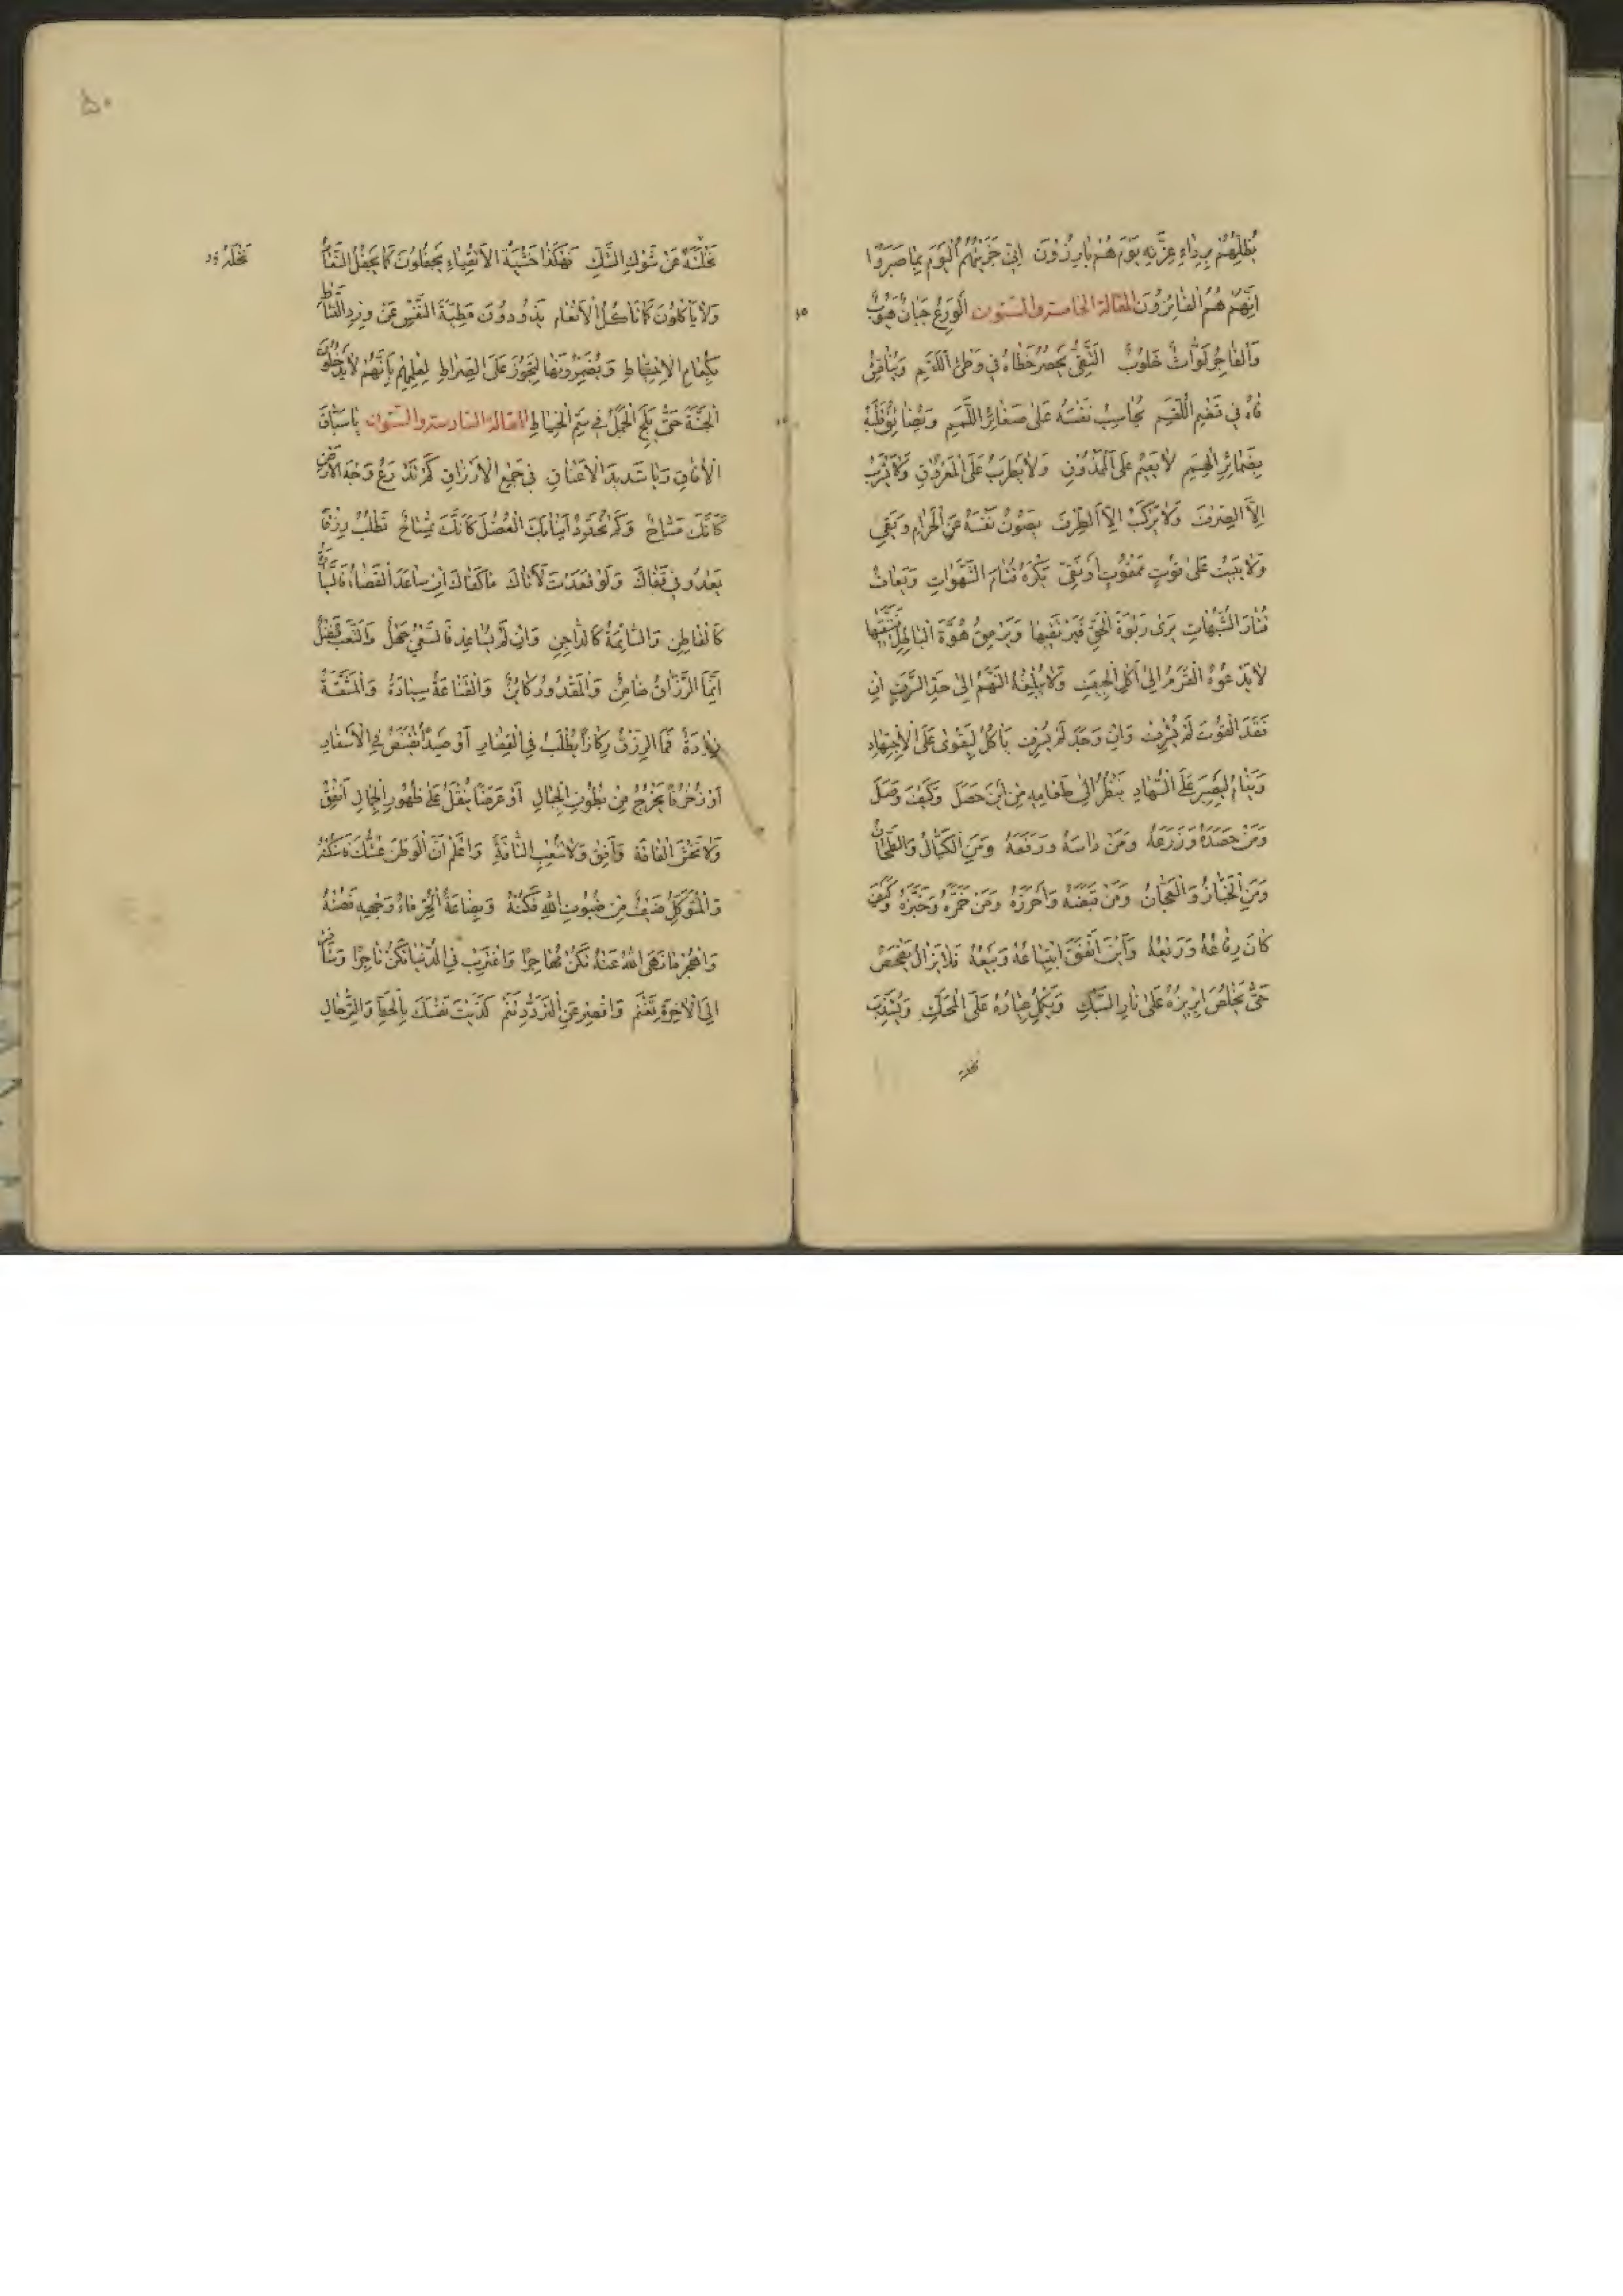 يُظِلُّهُمْ بِرِدَاءِ عِزَّتِهِ يَوْمَ هُمْ بَارِزُونَ اِنِّي جَزَيْتُهُمُ الْيَوْمَ بِمَا صَبَرُوا
اَنَّهُمْ هُمُ الْفَائِزُونَ المقالة الخامسة والستون اَلْوَرِعُ جَبَانٌ هَيُوبٌ
وَالْفَاجِرُ لَوَّاثٌ خَلُوبٌ اَلتَّقِيُّ يَحْصُرُ خُطَاهُ فِي وَطْئِ اللَّقَمِ وَيُنَاقِشُ
فَاهُ فِي قَضْمِ اللُّقَمِ يُحَاسِبُ نَفْسَهُ عَلَى صَغَائِرِ اللَّمَمِ وَيُضَايِقُ ظَنَّهُ
بِضَمَائِرِ الْهِمَمِ لَا يَهِيمُ عَلَى الْمَذُوقِ وَلَا يَطْرَبُ عَلَى الْمَعْزُوفِ وَلَا يَشْرَبُ
اِلَّا الصِّرْفَ وَلَا يَرْكَبُ اِلَّا الطِّرْفَ يَصُونُ نَفْسَهُ عَنِ الْحَرَامِ وَيَقِي
وَلَا يَبِيتُ عَلَى قُوتٍ مَمْقُوتٍ اَوْ بَقِيٍّ يَكْرَهُ قَتَامَ الشَّهَوَاتِ وَيَعَافُ
قَتَادَ الشُّبُهَاتِ يَرَى رَبْوَةَ الْحَقِّ فَيَرْتَقِيهَا وَيَرْمُقُ هُوَّةَ الْبَاطِلِ فَيَتَّقِيهَا
لَا يَدْعُوهُ الْقَرَمُ اِلَى اَكْلِ الْجِيَفِ وَلَا يُبْلِغُهُ النَّهَمُ اِلَى حَدِّ السَّرَفِ اِنْ
فَقَدَ الْقُوتَ لَمْ يُشْرِفْ وَاِنْ وَجَدَ لَمْ يُسْرِفْ يَأْكُلُ لِيَقْوَى عَلَى الْاِجْتِهَادِ
وَيَنَامُ لِيَصْبِرَ عَلَى السُّهَادِ يَنْظُرُ اِلَى طَعَامِهِ مِنْ اَيْنَ حَصَلَ وَكَيْفَ وَصَلَ
وَمَنْ حَصَدَهُ وَزَرَعَهُ وَمَنْ دَاسَهُ وَرَفَعَهُ وَمَنِ الْكَيَّالُ وَالطَّحَّانُ
وَمَنِ الْخَبَّازُ وَالْعَجَّانُ وَمَنْ قَبَضَهُ وَاَحْرَزَهُ وَمَنْ خَمَّرَهُ وَخَبَزَهُ وَكَيْفَ
كَانَ رِفَاعُهُ وَرَيْعُهُ وَاَيْنَ اتَّفَقَ ابْتِيَاعُهُ وَبَيْعُهُ فَلَا يَزَالُ يَفْحَصُ
حَتَّى يَخْلُصَ اِبْرِيزُهُ عَلَى نَارِ السَّبْكِ وَيَكْمُلَ عِيَارُهُ عَلَى الْمَحَكِّ
نخله
٥٠
نَخْلَهُ عَنْ شَوْكِ الشَّكِّ فَهَكَذَا خَشْيَةُ الْاَتْقِيَاءِ يَجْفُلُونَ كَمَا يَجْفُلُ النَّعَامُ
وَلَا يَأْكُلُونَ كَمَا تَأْكُلُ الْاَنْعَامُ يَذُودُونَ مَطِيَّةَ النَّفْسِ عَنْ وِرْدِ
بِكِعَامِ الْاِحْتِيَاطِ وَيُضَمِّرُونَهَا لِتَجُوزَ عَلَى الصِّرَاطِ لِعِلْمِهِمْ بِاَنَّهُمْ لَا يَدْخُلُونَ
الْجَنَّةَ حَتَّى يَلِجَ الْجَمَلُ فِي سَمِّ الْخِيَاطِ المقالة السادسة والستون يَا سَبَّاقَ
الْآفَاقِ وَيَا شَدِيدَ الْاَعْنَاقِ فِي جَمْعِ الْاَرْزَاقِ كَمْ تَذْرَعُ وَجْهَ الْاَرْضِ
كَاَنَّكَ مَسَّاحٌ وَكَمْ تُحَدِّدُ اَنْيَابَكَ الْعُصُلَ كَاَنَّكَ تِمْسَاحٌ تَطْلُبُ رِزْقًا
يَعْدُو فِي قَفَاكَ وَلَوْ قَعَدْتَ لَاَتَاكَ مَا كَفَاكَ اِنْ سَاعَدَ الْقَضَاءُ
كَالْقَاطِنِ وَالسَّائِمَةُ كَالدَّاجِنِ وَاِنْ لَمْ يُسَاعِدْ فَالسَّعْيُ جَهْلٌ وَالتَّعَبُ فَضْلٌ
اِنَّمَا الرَّزَّاقُ ضَامِنٌ وَالْمَقْدُورُ كَائِنٌ وَالْقَنَاعَةُ سِيَادَةٌ وَالْمَشَقَّةُ
زِيَادَةٌ فَمَا الرِّزْقُ رِكَازًا يُطْلَبُ فِي الْقِفَارِ اَوْ صَيْدًا يُقْتَنَصُ فِي الْاَسْفَارِ
اَوْ زُخْرُفًا يَخْرُجُ مِنْ بُطُونِ الْجِبَالِ اَوْ عَرَضًا يُنْقَلُ عَلَى ظُهُورِ الْجِمَالِ اَنْفِقْ
وَلَا تَخْشَ الْفَاقَةَ وَاَفِقْ وَلَا تُتْعِبِ النَّاقَةَ وَاعْلَمْ اَنَّ الْوَطَنَ عُشُّكَ
وَالْمُتَوَكِّلُ ضَيْفٌ مِنْ ضُيُوفِ اللهِ فَكُنْهُ وَبِضَاعَةُ الْحُرِّ مَاءُ وَجْهِهِ فَصُنْهُ
وَاهْجُرْ مَا نَهَى اللهُ عَنْهُ تَكُنْ مُهَاجِرًا وَاغْتَرِبْ فِي الدُّنْيَا تَكُنْ تَاجِرًا وَسَافِرْ
اِلَى الْآخِرَةِ تَغْنَمْ وَاقْصِرْ عَنِ التَّرَدُّدِ تَنَمْ كَذَبَتْ نَفْسُكَ بِالْحَلِّ وَالتِّرْحَالِ